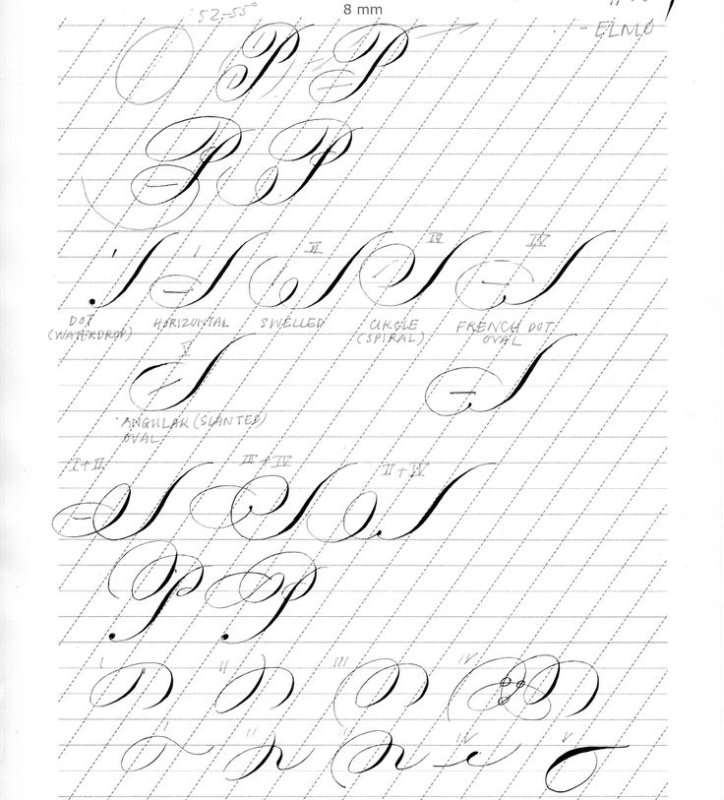 8 mm
52-55°
- ELMO
P P
P P
I I II III IV
DOT HORIZONTAL SWELLED CIRCLE FRENCH DOT
(WATERDROP) (SPIRAL) OVAL
V
ANGULAR (SLANTED)
OVAL
I+II III+IV II+IV
P P
I II III IV
I II II IV V